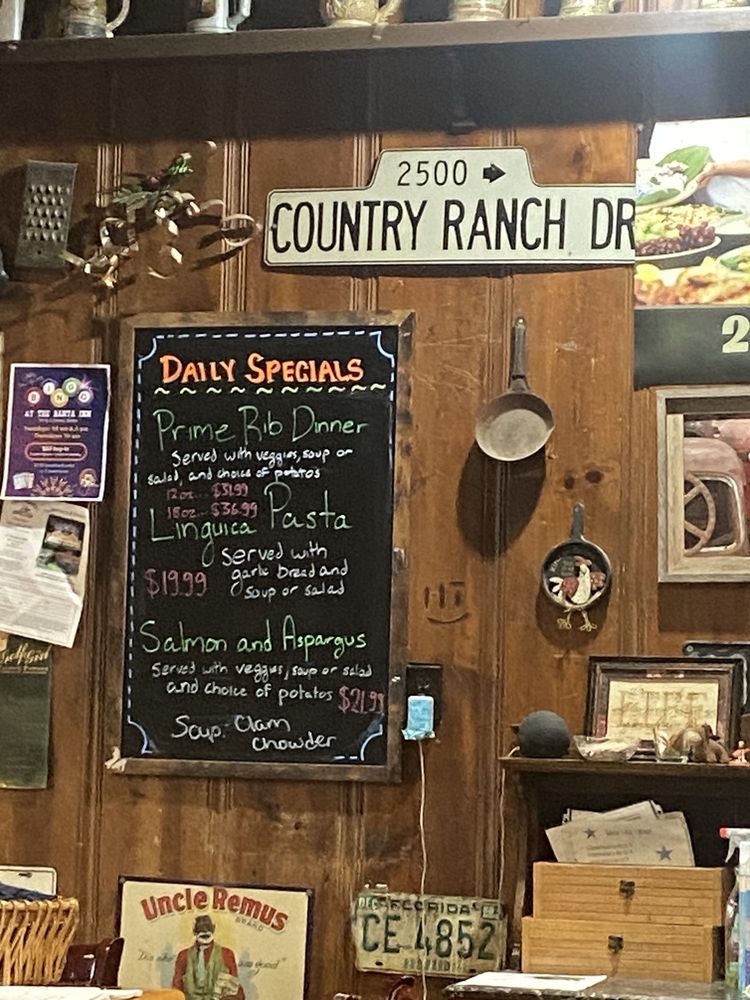 2500
COUNTRY RANCH DR
2
BINGO
AT THE BANTA INN
DAILY SPECIALS
Prime Rib Dinner
Served with veggies, soup or
salad, and choice of potatos
12oz... $31.99
18oz... $36.99
Linguica Pasta
served with
garlic bread and
soup or salad
$19.99
Salmon and Aspargus
Served with veggies, soup or salad
and choice of potatos $21.99
Soup: Clam
Chowder
HI
Uncle Remus
BRAND
FLORIDA
CE 4852